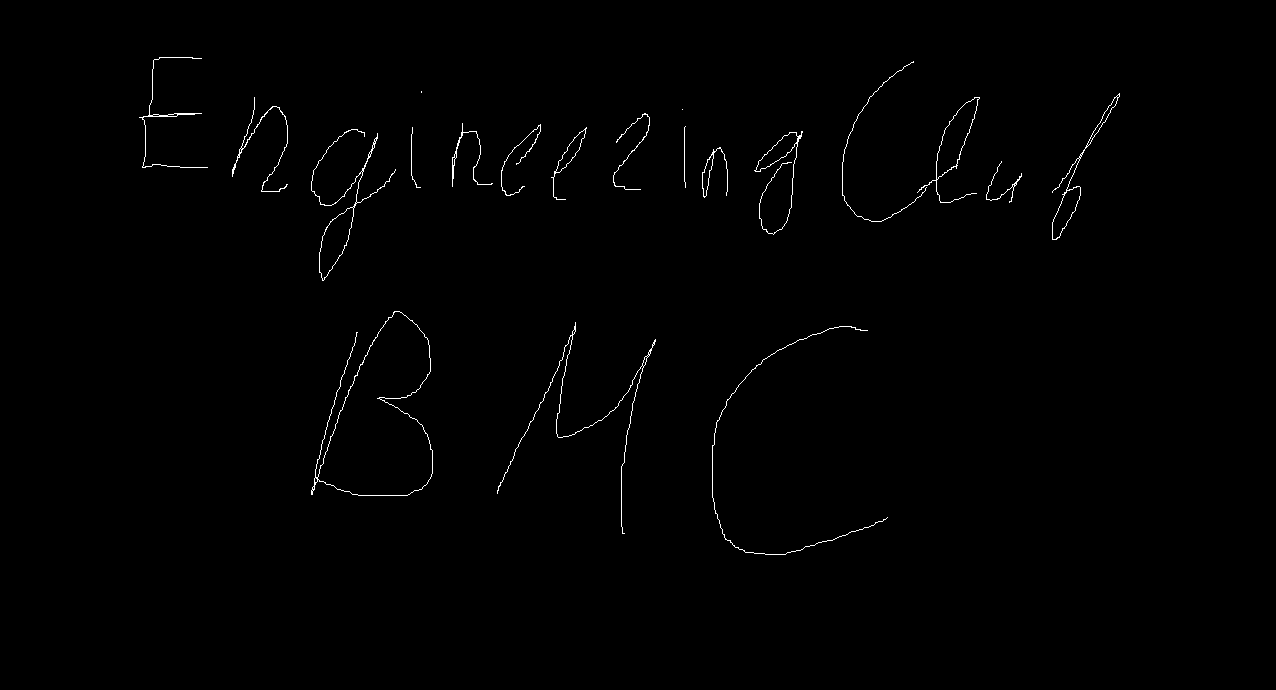 Engineering Club
BMC